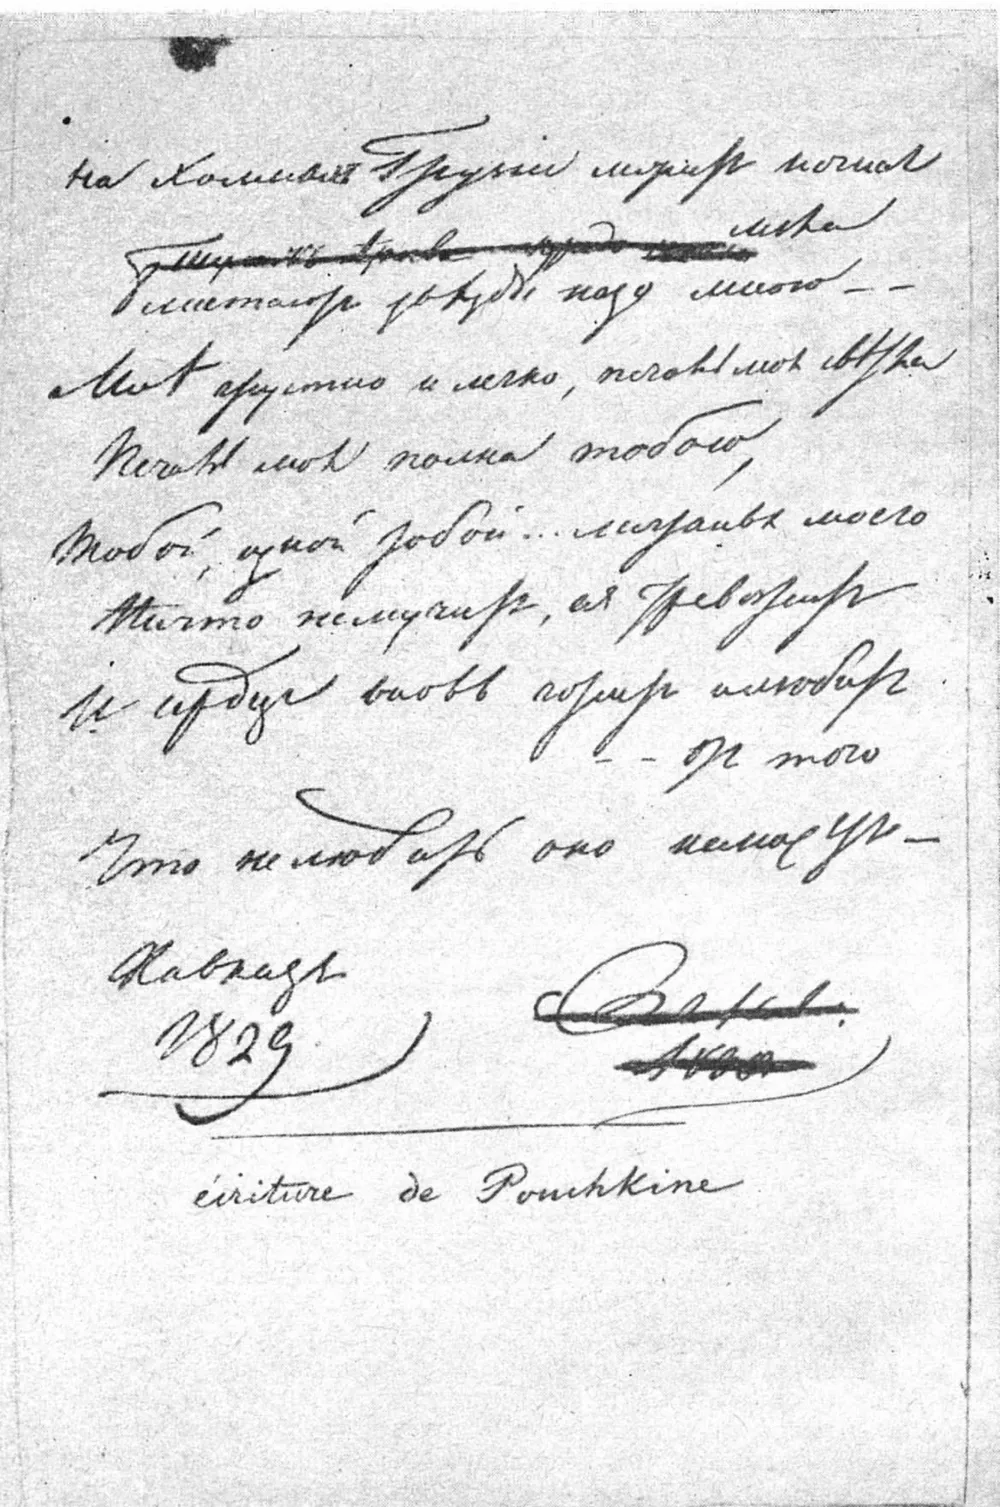 На Холмахъ Грузіи лежитъ ночная
мгла
блистаютъ звѣзды надо мною - -
Мнѣ грустно и легко, печаль моя свѣтла
Печаль моя полна тобою,
Тобой, одной тобой... мечтанья моего
Ничто не мучитъ, не тревожитъ
И сердце вновь горитъ и любитъ
- - отъ того
Что не любить оно не можетъ —
Кавказъ
1829
écriture de Pouchkine